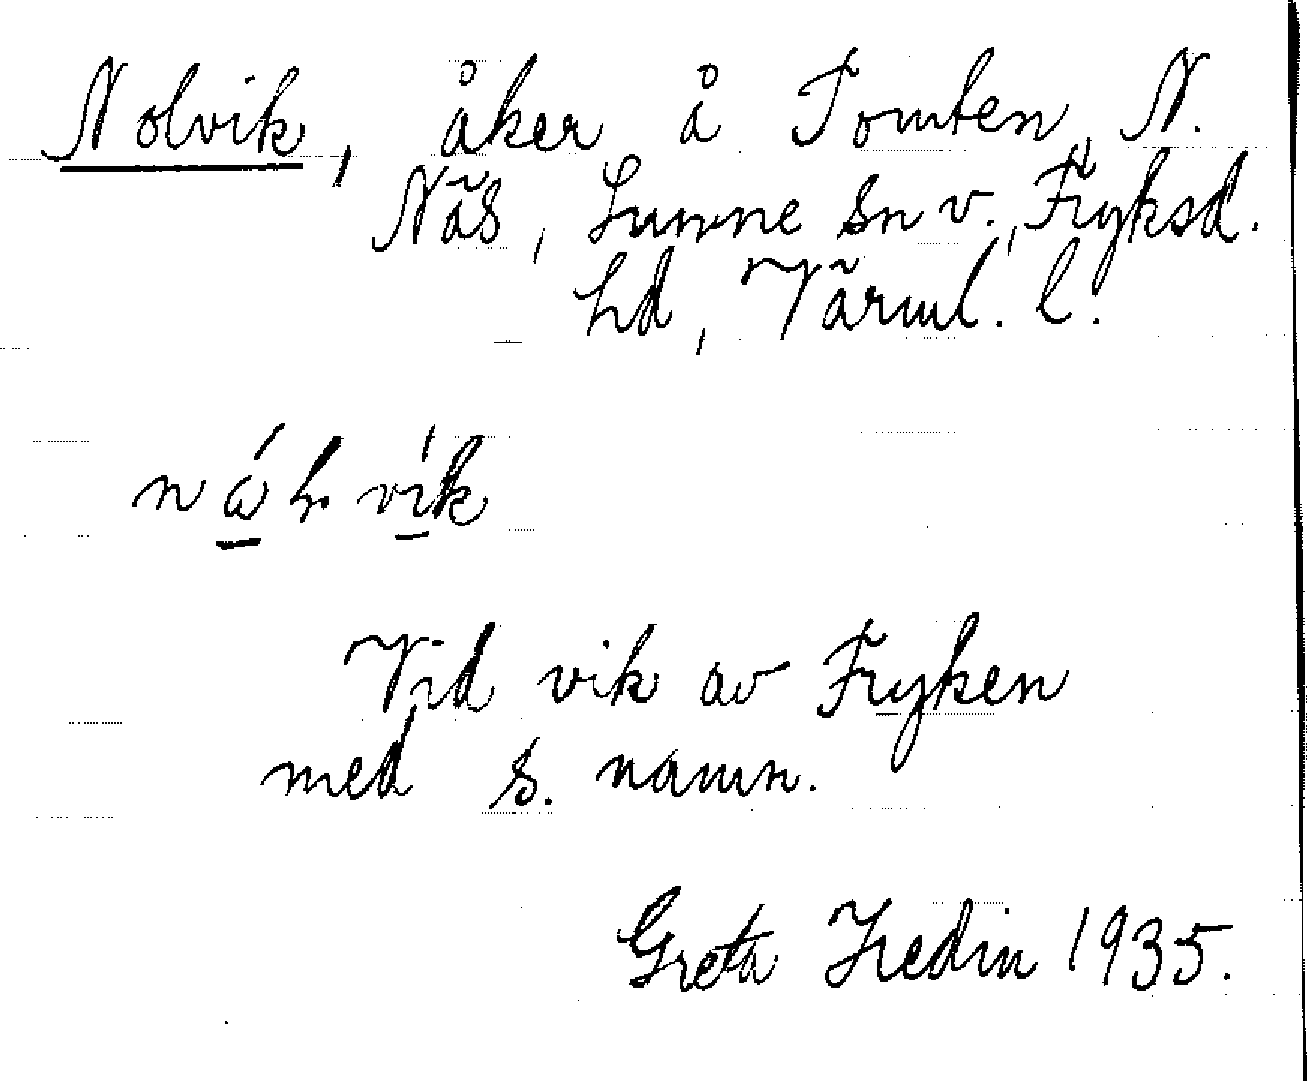 Nolvik, åker å Tomten, N.
Näs, Sunne sn v., Fryksd.
hd, Värml. l.
Vid vik av Fryken
med s. namn.
Greta Hedin 1935.